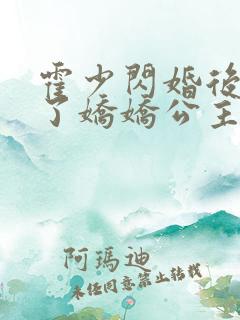 霍少閃婚後
了嬌嬌公主
阿瑪迪
未经同意禁止转载